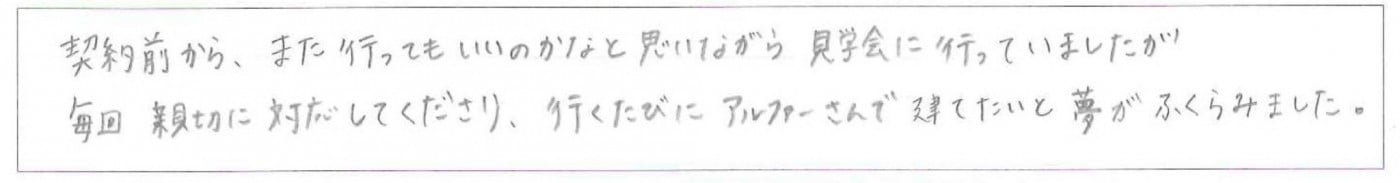 契約前から、また行ってもいいのかなと思いながら 見学会に行っていましたが
毎回 親切に対応してくださり、行くたびに アルファーさんで 建てたいと夢が ふくらみました。